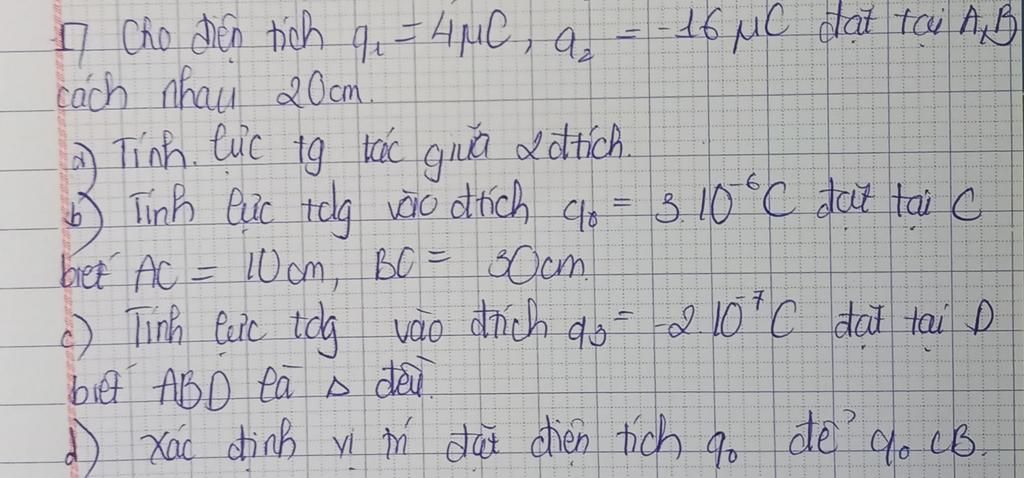 1) Cho điện tích q₁ = 4μC, q₂ = -16 μC đặt tại A,B
cách nhau 20cm.
a) Tính lực tg tác giữa 2 đtích.
b) Tính lực tdg vào đtích q₀ = 3.10⁻⁶C đặt tại C
biết AC = 10cm, BC = 30cm.
c) Tính lực tdg vào đtích q₃ = -2.10⁻⁷C đặt tại D
biết ABD là Δ đều.
d) Xác định vị trí đặt điện tích q₀ để q₀ CB.